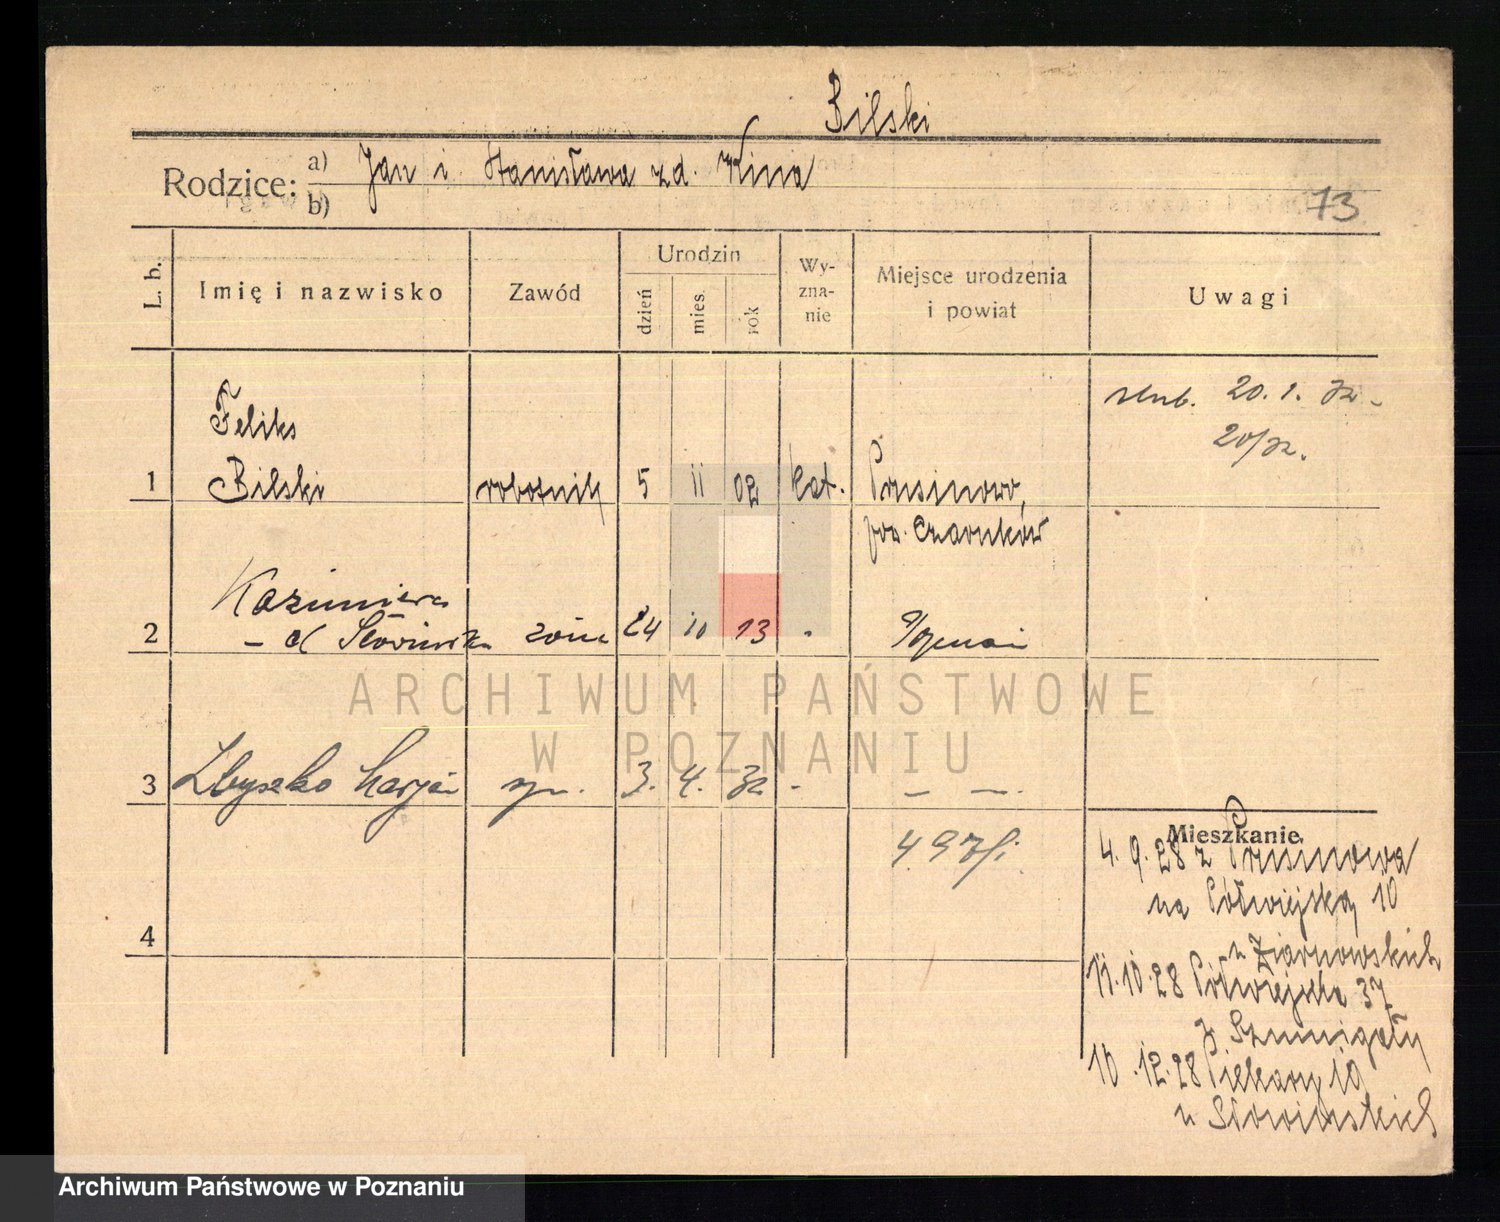 Bilski
Rodzice: a) Jan i Stanisława z d. Kina
b)
73
L. b.
Imię i nazwisko
Zawód
Urodzin
dzień
mies.
rok
Wy-
zna-
nie
Miejsce urodzenia
i powiat
Uwagi
ślub. 20. 1. 32 -
20/32.
Feliks
1 Bilski robotnik 5 11 02 kat. Prusinowo,
pow. Czarnków
Kazimiera
2 - d Słowińska żona 24 10 13 - Poznań
ARCHIWUM PAŃSTWOWE
W POZNANIU
3 Zbyszko Marjan syn. 3. 4. 32 - - -.
Mieszkanie
4. 9. 28 z Prusinowa
na Półwiejską 10
u Ziarnowskich
4
11. 10. 28 Półwiejska 37
10. 12. 28 Piekary 10
u Słowińskich
Archiwum Państwowe w Poznaniu